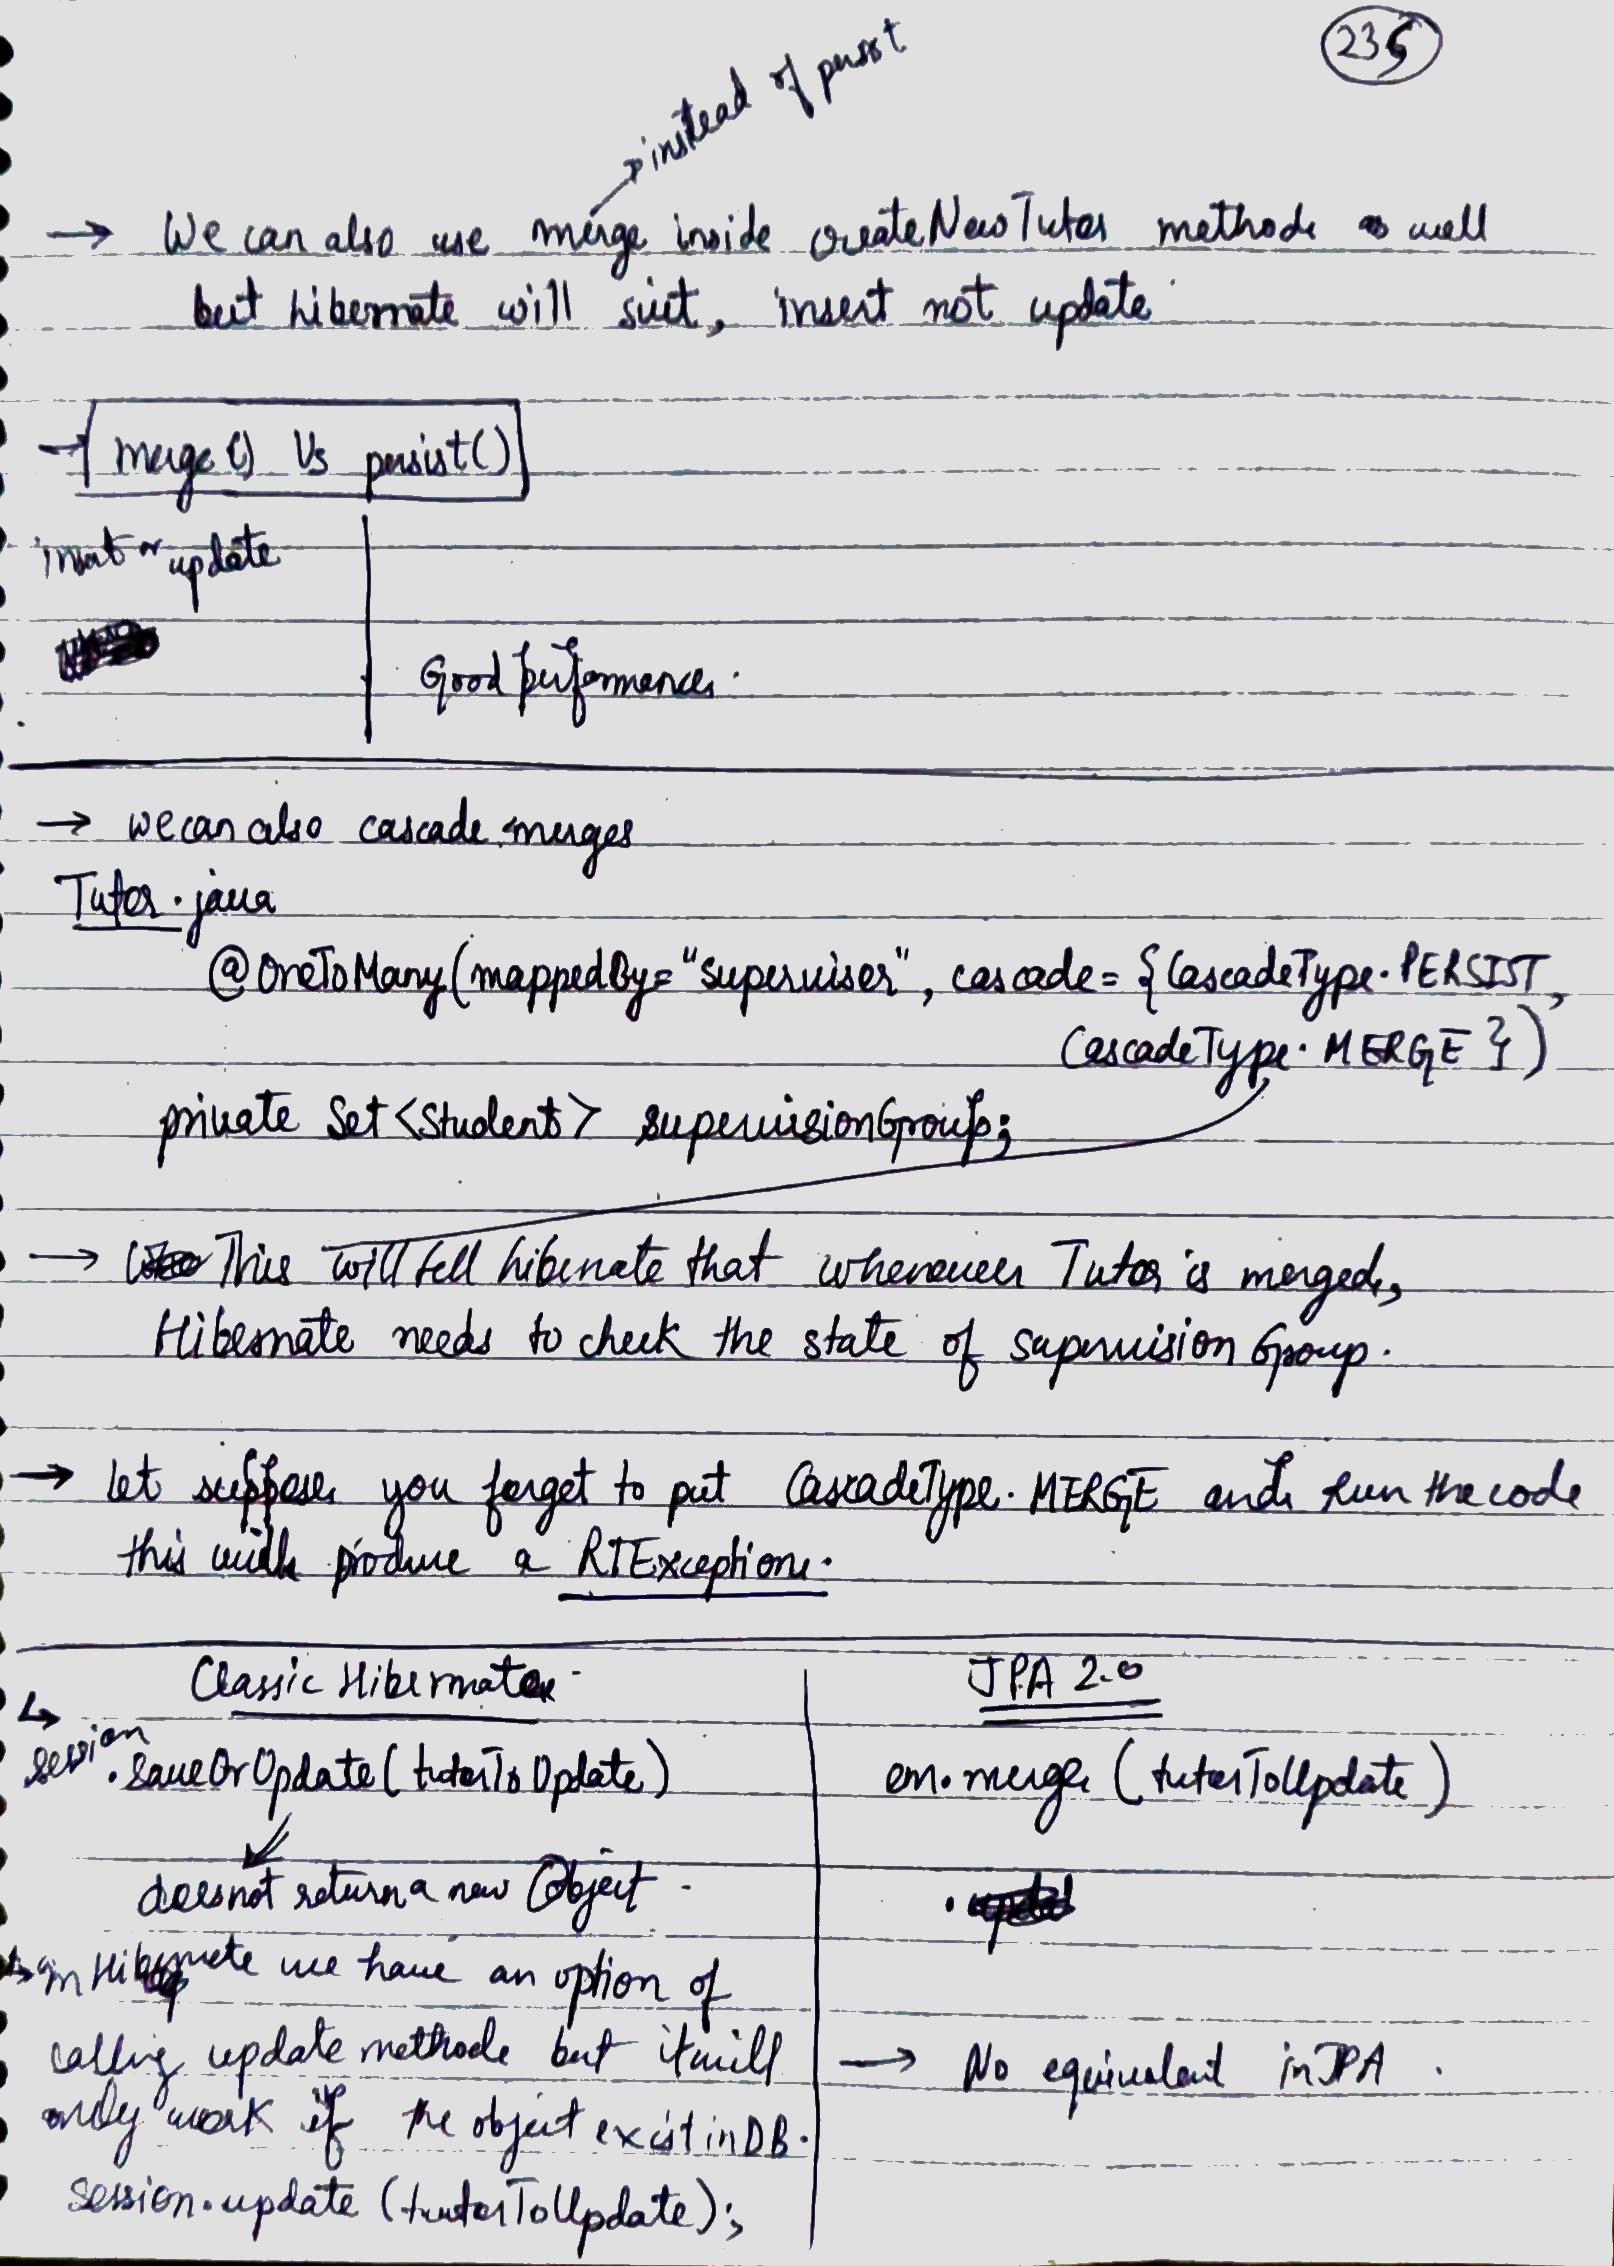 235
instead of persist
→ We can also use merge inside createNewTutor method as well
but hibernate will suit, insert not update.
→ merge() Vs persist()
insert or update
Good performance.
→ we can also cascade merges
Tutor.java
@OneToMany(mappedBy="superviser", cascade={CascadeType.PERSIST,
CascadeType.MERGE})
private Set<Student> supervisionGroup;
→ This will tell hibernate that whenever Tutor is merged,
Hibernate needs to check the state of supervision Group.
→ let suppose you forget to put CascadeType.MERGE and run the code
this will produce a RTException.
Classic Hibernate
JPA 2.0
↳ session.saveOrUpdate(tutorToUpdate)
em.merge(tutorToUpdate)
does not return a new Object.
↳ in Hibernate we have an option of
calling update method but it will
→ No equivalent in JPA.
only work if the object exist in DB.
session.update(tutorToUpdate);